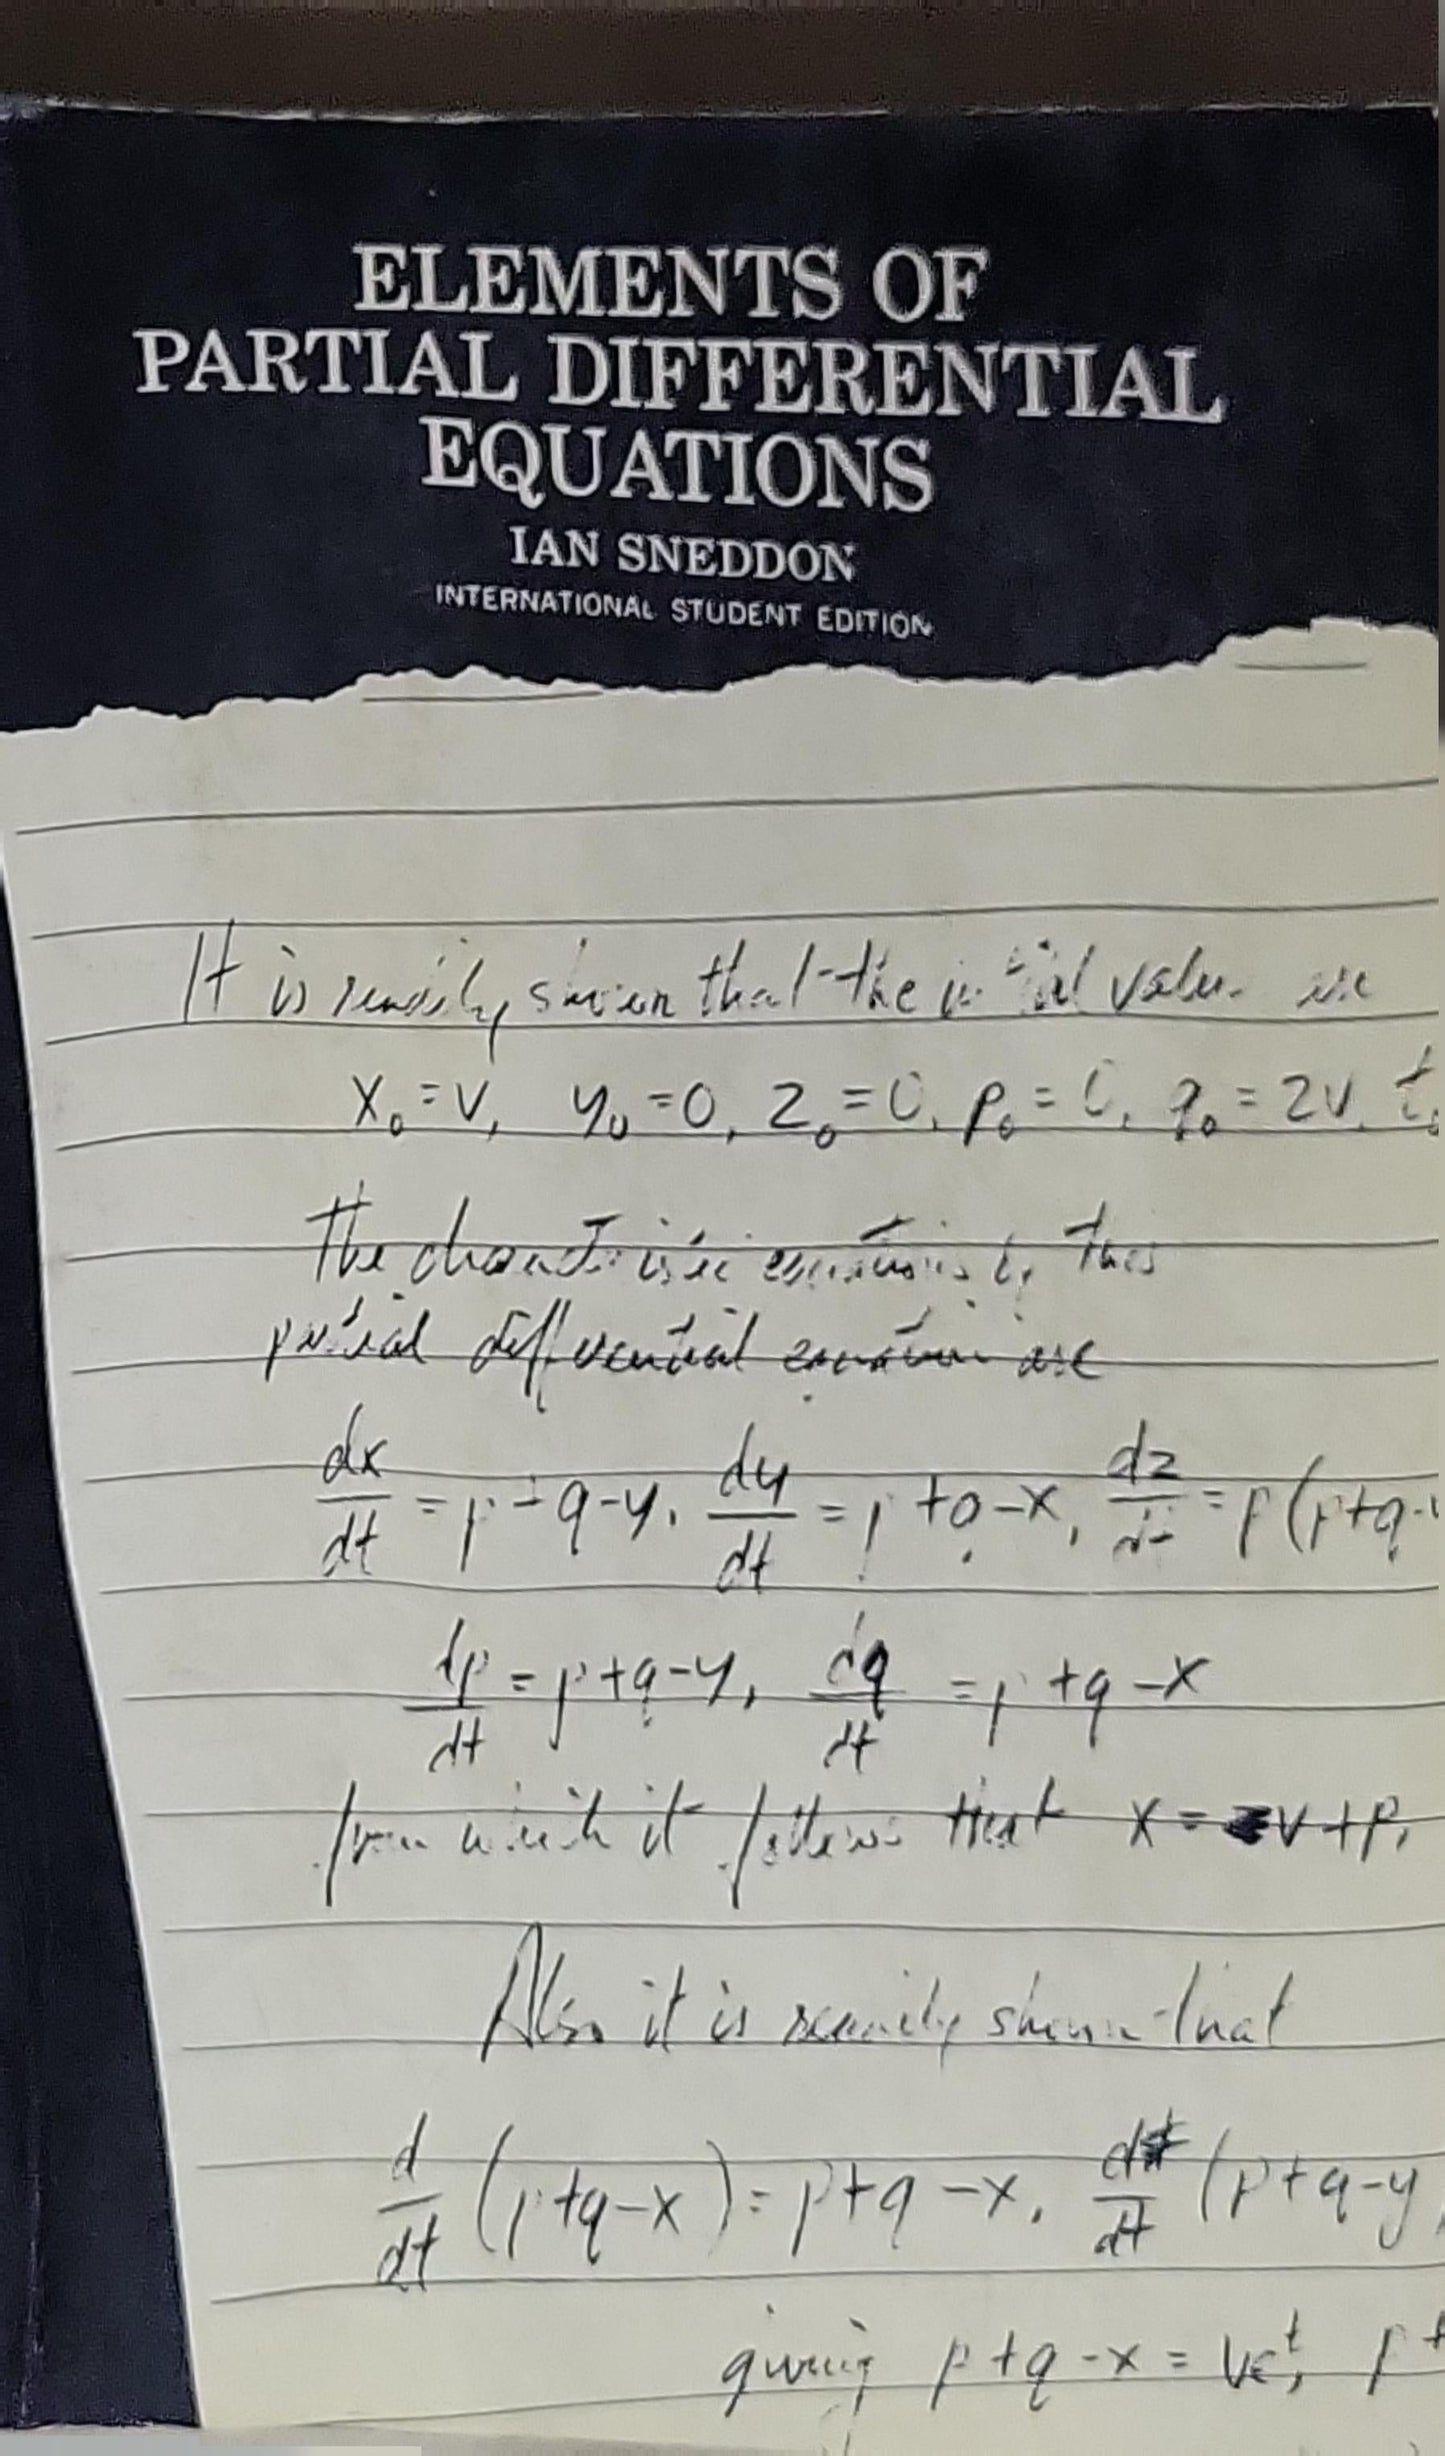 ELEMENTS OF
PARTIAL DIFFERENTIAL
EQUATIONS
IAN SNEDDON
INTERNATIONAL STUDENT EDITION
It is readily shown that the initial values are
x₀ = v, y₀ = 0, z₀ = 0, p₀ = 0, q₀ = 2v, t₀
The characteristic equations of this
partial differential equation are
dx/dt = p + q - y, dy/dt = p + q - x, dz/dt = p(p + q -
dp/dt = p + q - y, dq/dt = p + q - x
from which it follows that x = v + p,
Also it is readily shown that
d/dt (p + q - x) = p + q - x, d/dt (p + q - y
giving p + q - x = ve^t, p +